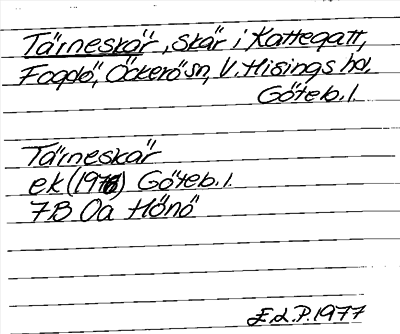 Tärneskär, skär i Kattegatt,
Fogdö, Öckerö sn, V. Hisings hd,
Göteb. l.
Tärneskär
ek (1976) Göteb. l.
7B 0a Hönö
E.L.P. 1977